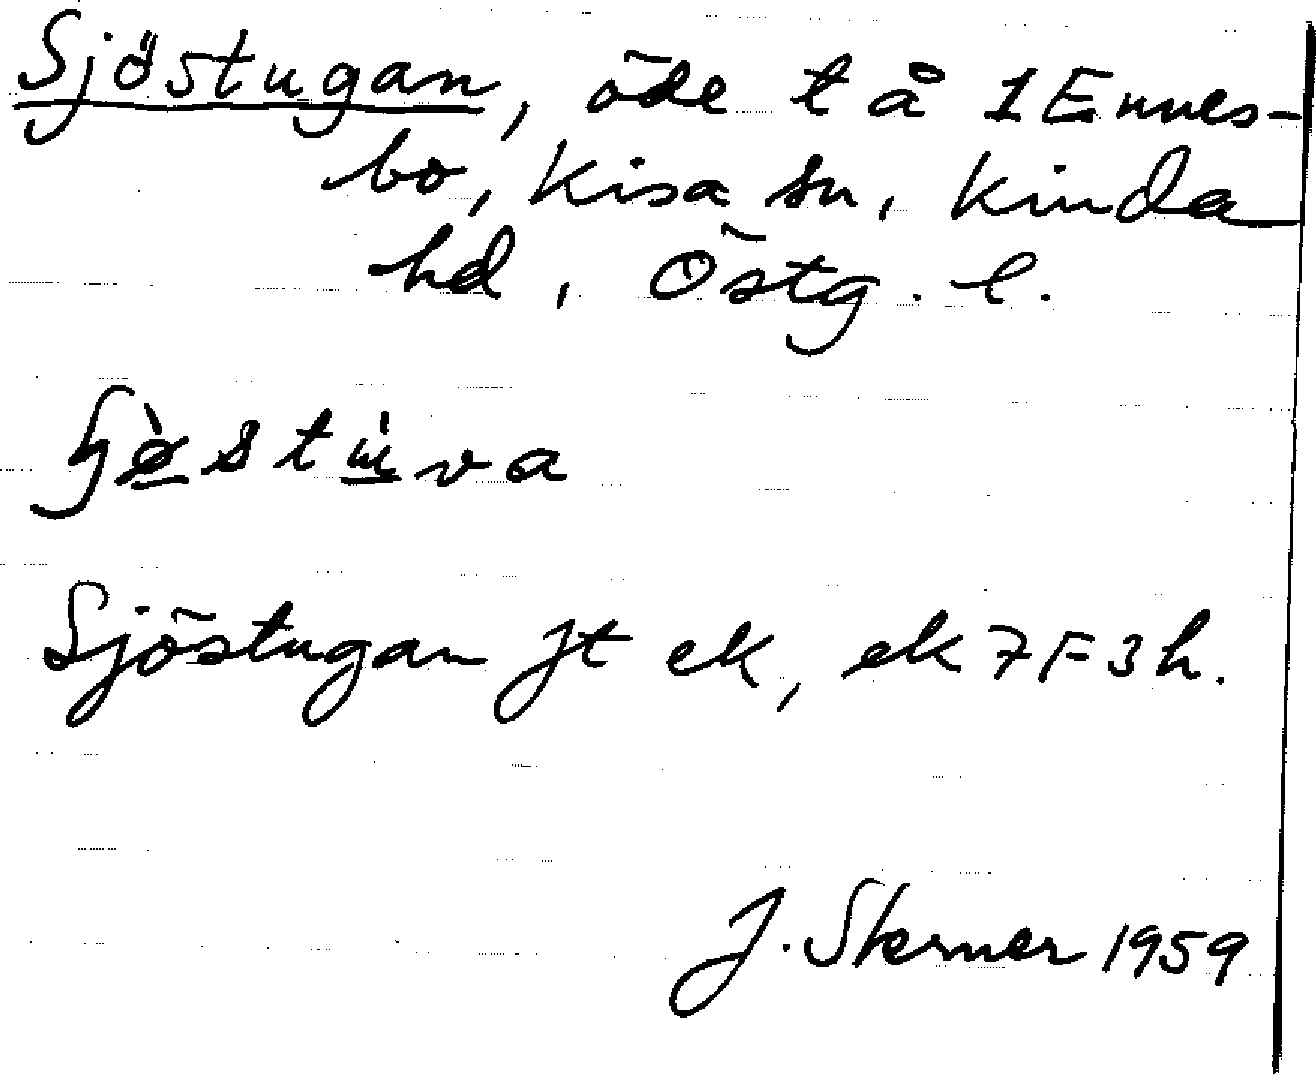 Sjöstugan, öde t å 1 Ennes-
bo, Kisa sn, Kinda
hd, Östg. l.
Sjöstugan Jt ek, ek 7F3h.
J. Sterner 1959